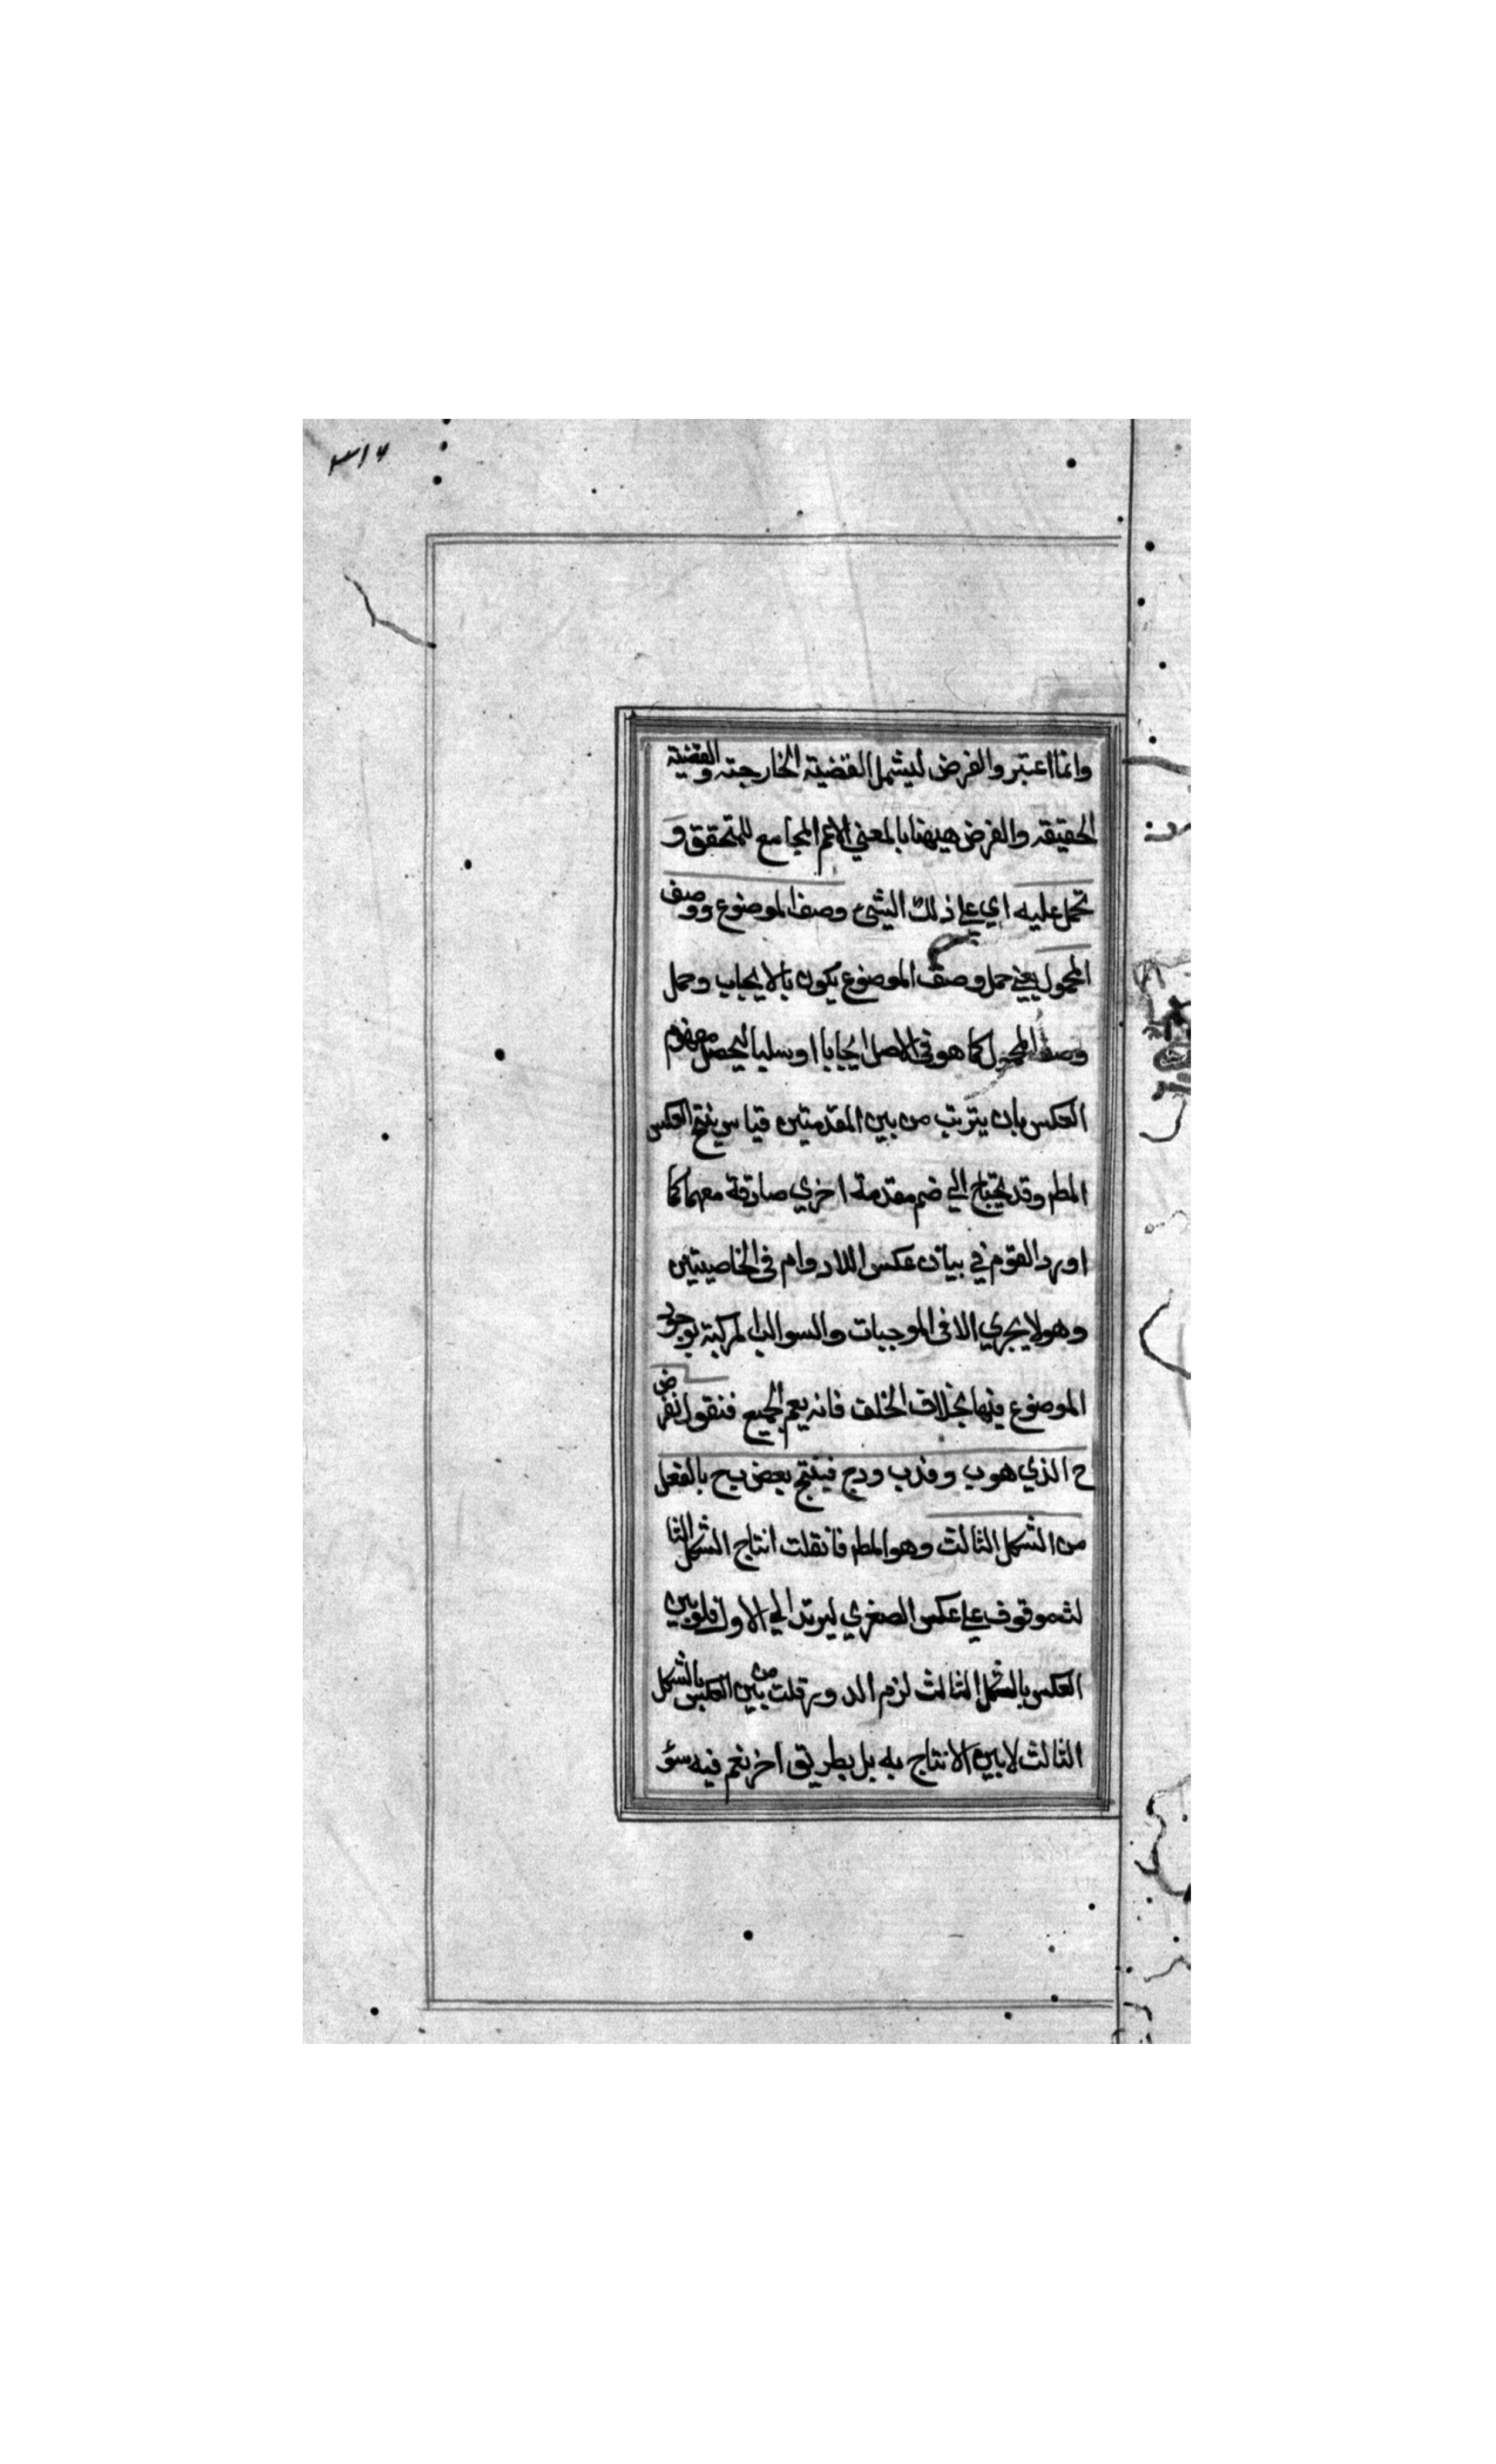 ٣١٧
وانما اعتبر والفرض ليشمل القضيته الخارجته والقضيته
الحقيقه والفرض هيهنا بالمعني الاعم المجامع للتحقق و
تحمل عليه اي علي ذلك الشئ وصف الموضوع ووصف
المحمول يعني حمل وصف الموضوع يكون بالايجاب وحمل
وصف المحمول كما هو في الاصل ايجابا او سلبا ليحصل مفهوم
العكس بان يترتب من بين المقدمتين قياس ينتج العكس
المط وقد يحتاج الي ضم مقدمة اخري صادقة معهما كما
اورد القوم في بيان عكس اللادوام في الخاصيتين
وهو لا يجري الا في الموجبات والسوالب المركبة بوجود
الموضوع فيها بخلاف الخلف فانه يعم الجميع فنقول نفرض
ح الذي هو ب وفدب ودج فينتج بعض ب ح بالفعل
من الشكل الثالث وهو المط فانقلت انتاج الشكل الثا
لث موقوف علي عكس الصغري ليرتد الي الاول فلو بين
العكس بالشكل الثالث لزم الدور قلت من بين العكس بالشكل
الثالث لا يبين الانتاج به بل بطريق اخر نعم فيه سؤ